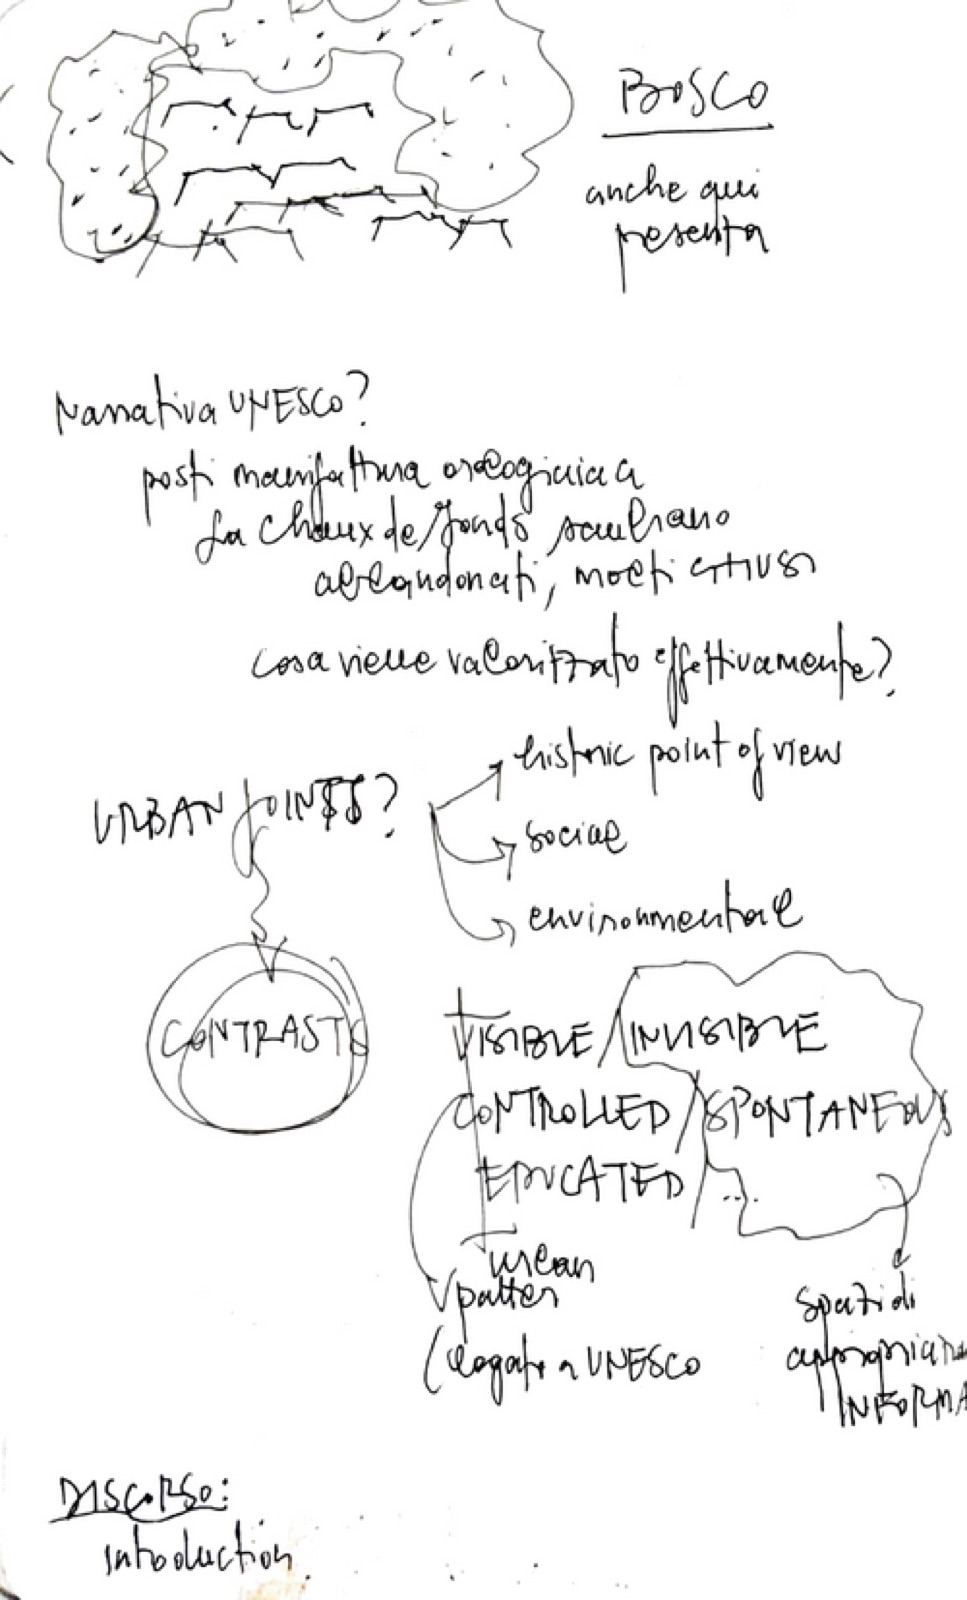 BOSCO
anche qui
presenta
Narrativa UNESCO?
posti manifattura orologiaia a
La Chaux de/fonds sembrano
abbandonati, molti chiusi
cosa viene valorizzato effettivamente?
URBAN JOINTS?
historic point of view
social
environmental
CONTRASTS
VISIBLE / INVISIBLE
CONTROLLED / SPONTANEOUS
EDUCATED / ...
urban
patter
(legato a UNESCO
spazi di
appropriazion
INFORMA
DISCORSO:
introduction